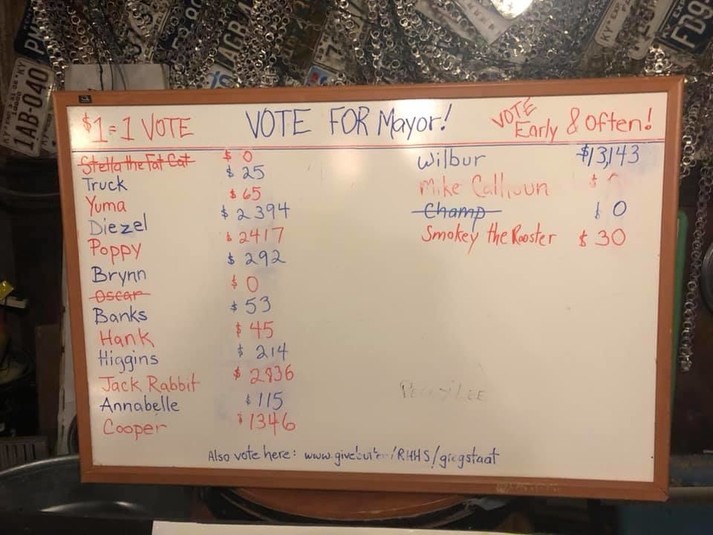 $1=1 VOTE
VOTE FOR Mayor!
VOTE Early & Often!
Stella the Fat Cat $ 0
Truck $ 25
Yuma $ 65
Diezel $ 2394
Poppy $ 2417
Brynn $ 292
Oscar $ 0
Banks $ 53
Hank $ 45
Higgins $ 214
Jack Rabbit $ 2836
Annabelle $ 115
Cooper $ 1346
Wilbur $13,143
Mike Calhoun $
Champ $ 0
Smokey the Rooster $ 30
LEE
Also vote here: /RHHS/gregstaat
1AB-040